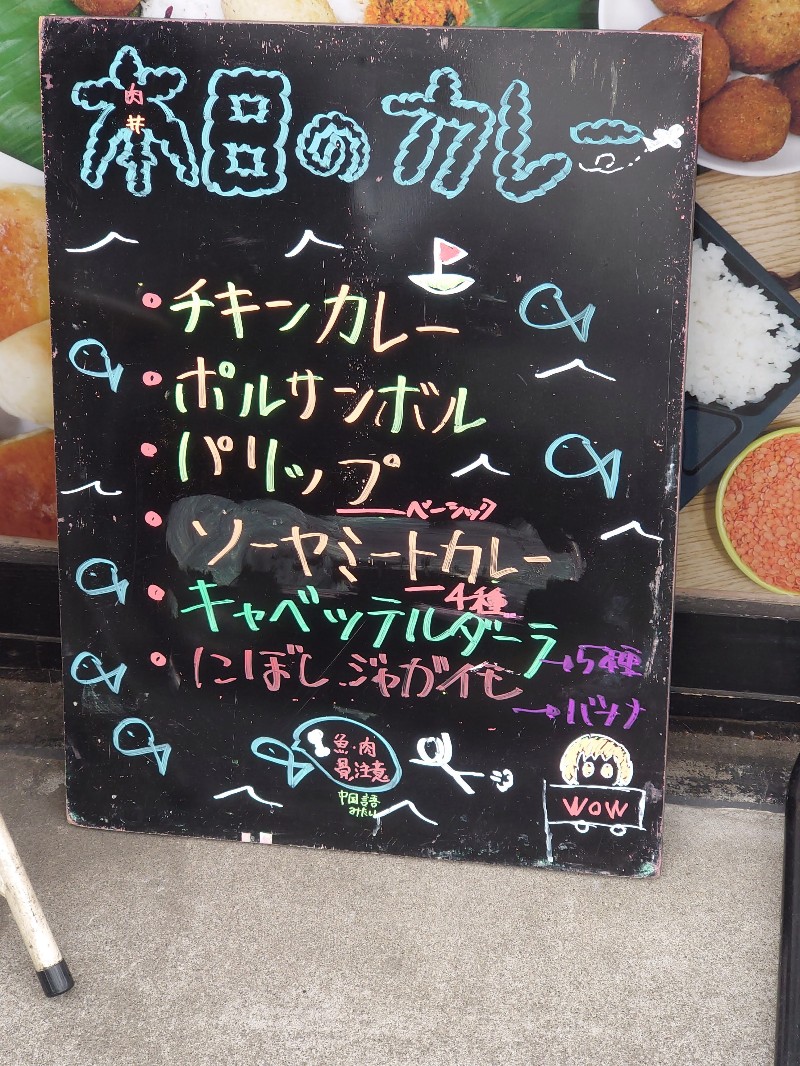 本日のカレー
肉
丼
・チキンカレー
・ポルサンボル
・パリップ
ベーシック
・ソーヤミートカレー
4種
・キャベツテルダーラ
→5種
・にぼしジャガイモ
→バナナ
魚・肉
骨注意
中国語
みたい
WOW